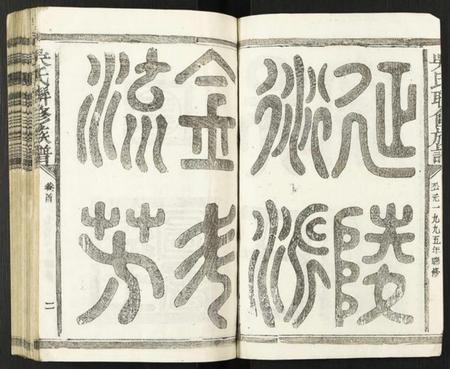 吴氏聯修族譜
公元一九九五年聯修
延陵
衍派
金
流芳
吴氏聯修族譜
卷首
二